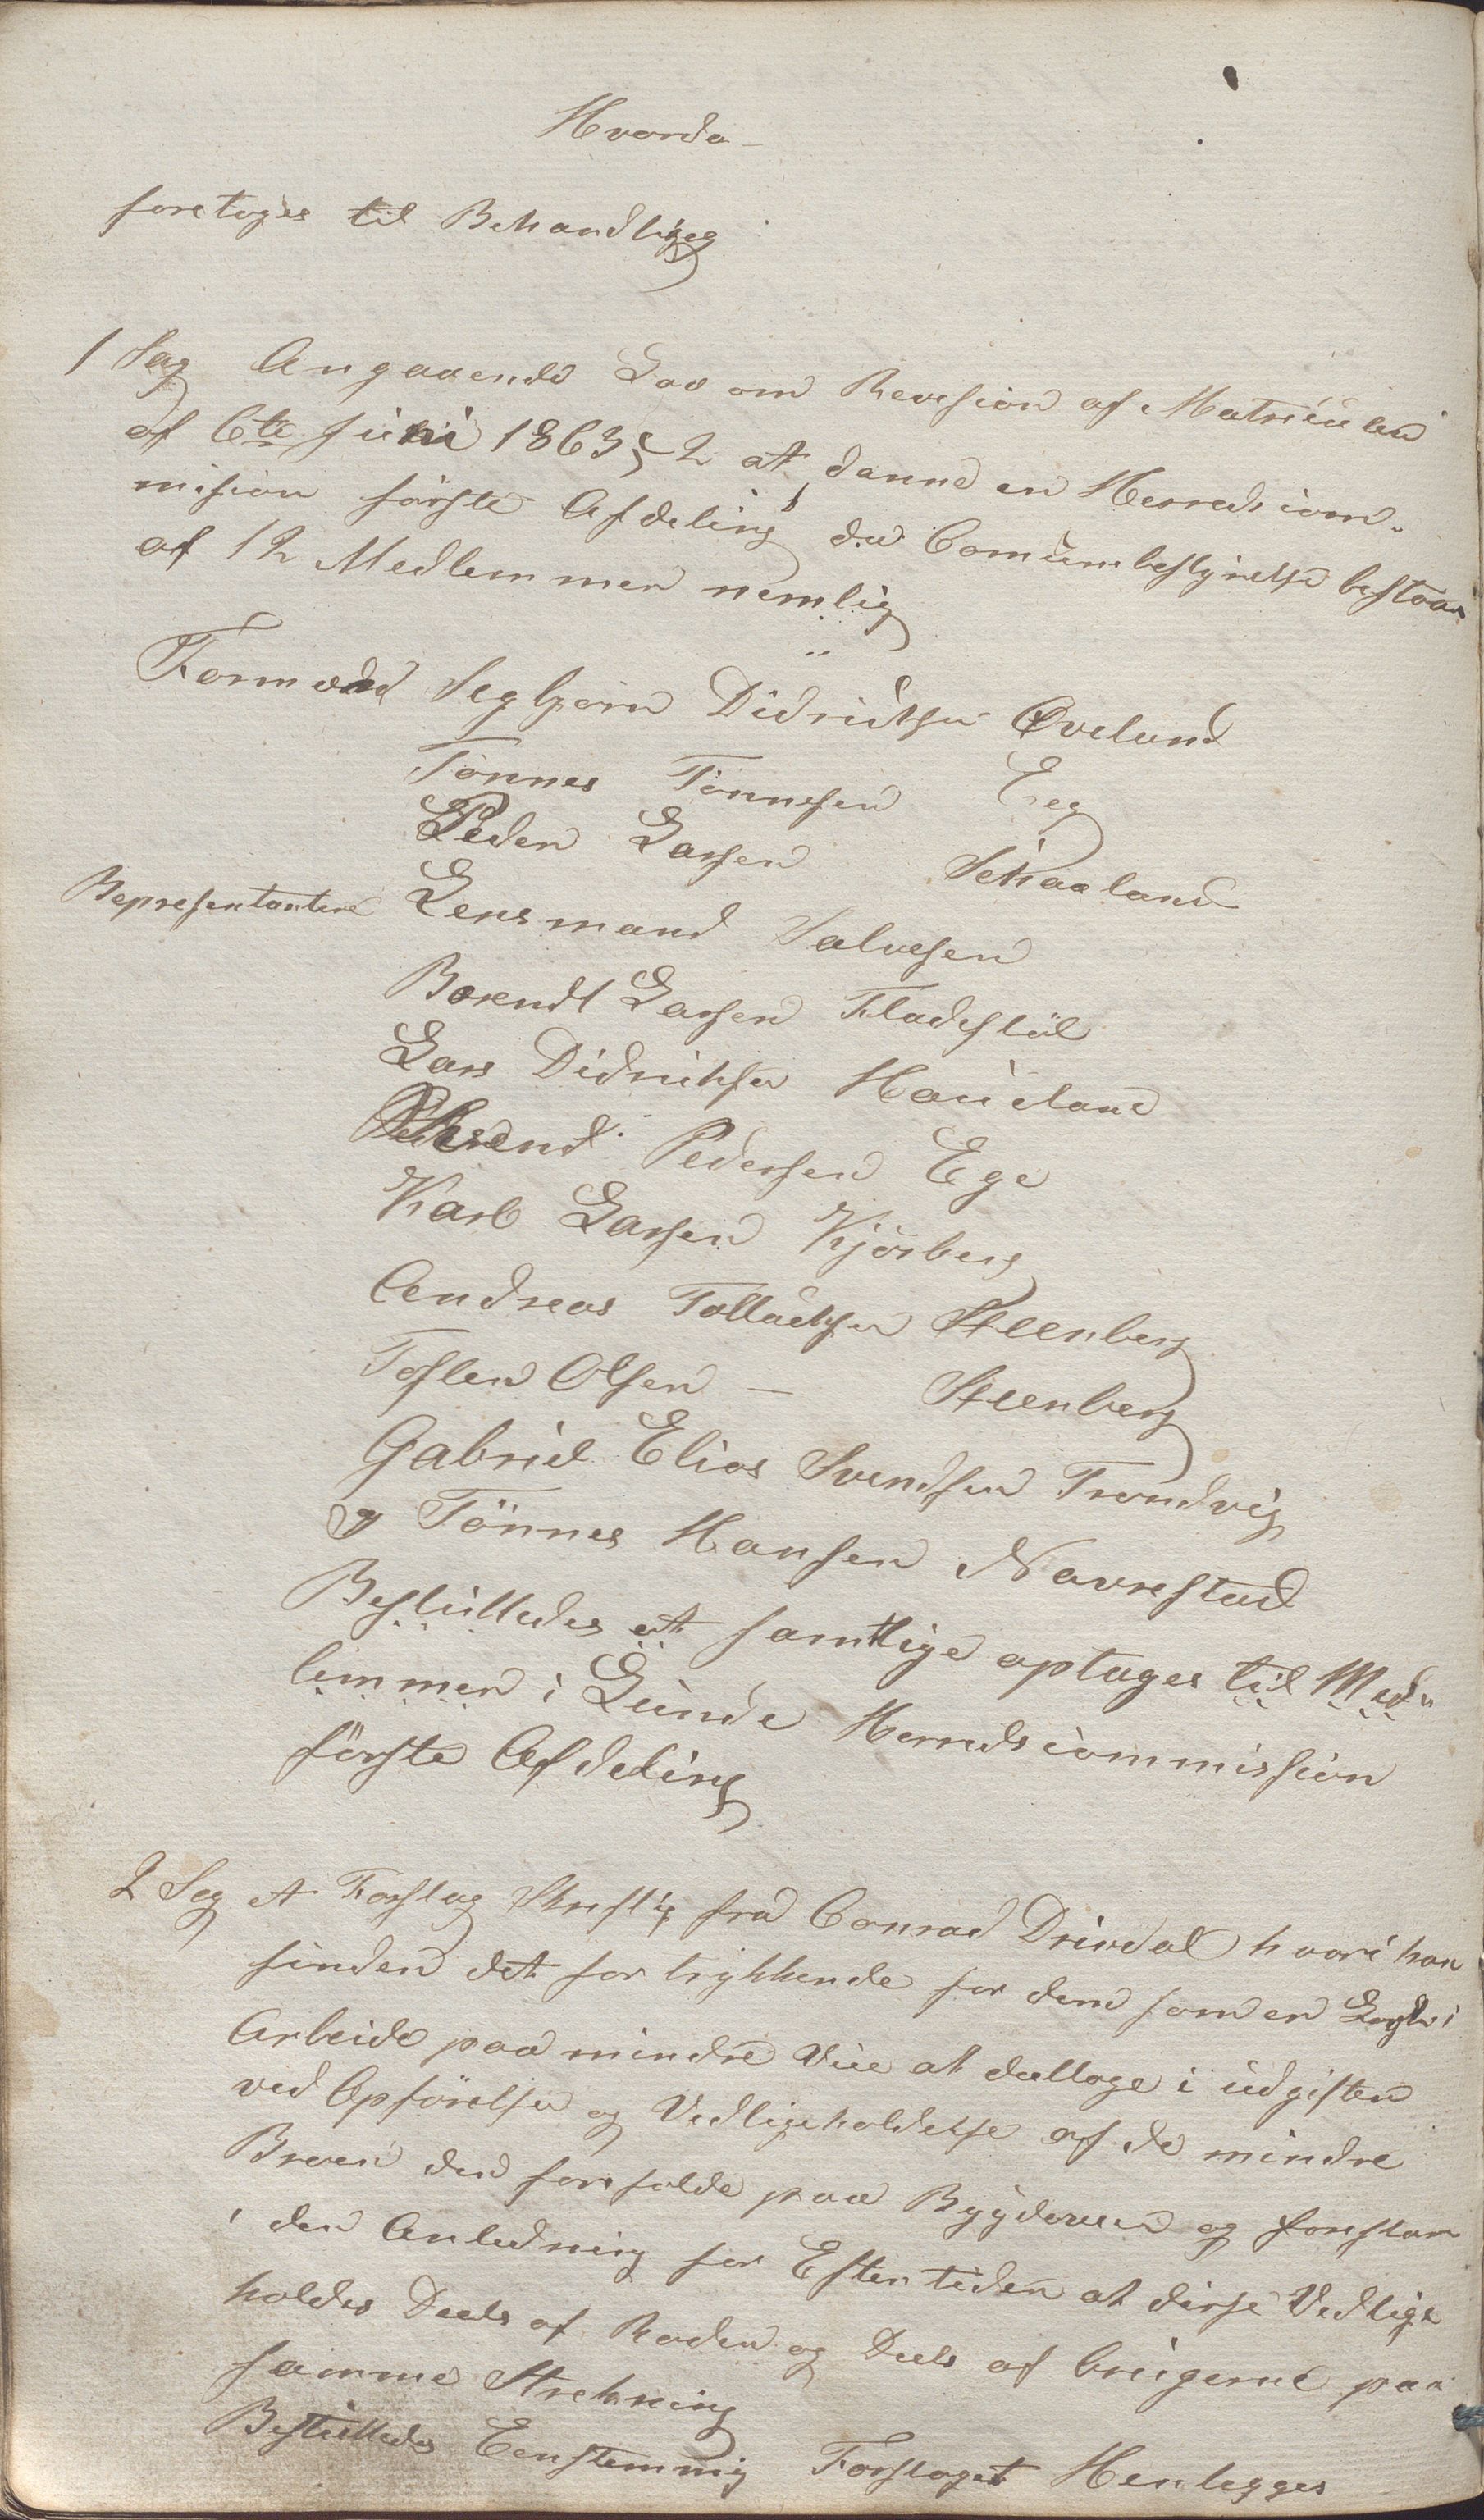 Hvorda
foretoges til Behandling
1 Sag Angaaende Lov om Revesion af Matriculen
af 6te Juni 1863 § 2 at danne en Herredscom-
mision første Afdeling da Comunnbestyrelse bestaar
af 12 Medlemmer nemlig
Formænd Segbjørn Didriksen Øveland
Tønnes Tønnesen Eeg
Peder Larsen Schaaland
Representantere Lensmand Salvesen
Barendt Larsen Fladestøl
Lars Didriksen Haueland
Behrend Pedersen Ege
Karl Larsen Kjørberg
Andreas Tollachsen Steenberg
Teslev Olsen – Steenberg
Gabriel Elias Svendsen Trondvig
og Tønnes Hansen Navrestad
Besluttedes at samtlige optages til Med-
lemmer i Lunde Herredscommission
første Afdeling
2 Sag et Forslag Skrftlig fra Conrad Drivdal hvori han
finder det for trykkende for dem som er Lagt i
Arbeide paa mindre Veie at deeltage i udgiften
ved Opførelse og Vedligeholdelse af de mindre
Broer der forefalde paa Bygdeveie og foreslar
i den Anledning for Eftertiden at disse Vedlige
holdes Deels af Roden og Deels af brugerne paa
samme Strekning
Besluttedes Eenstemmig Forslaget Henlegges